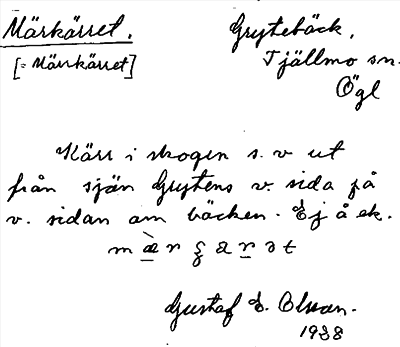 Märkärret. Grytebäck,
[= Märrkärret] Tjällmo sn.
Ögl
Kärr i skogen s.v ut
från sjön Grytens v. sida på
v. sidan om bäcken. Ej å ek.
Gustaf E. Olsson.
1938